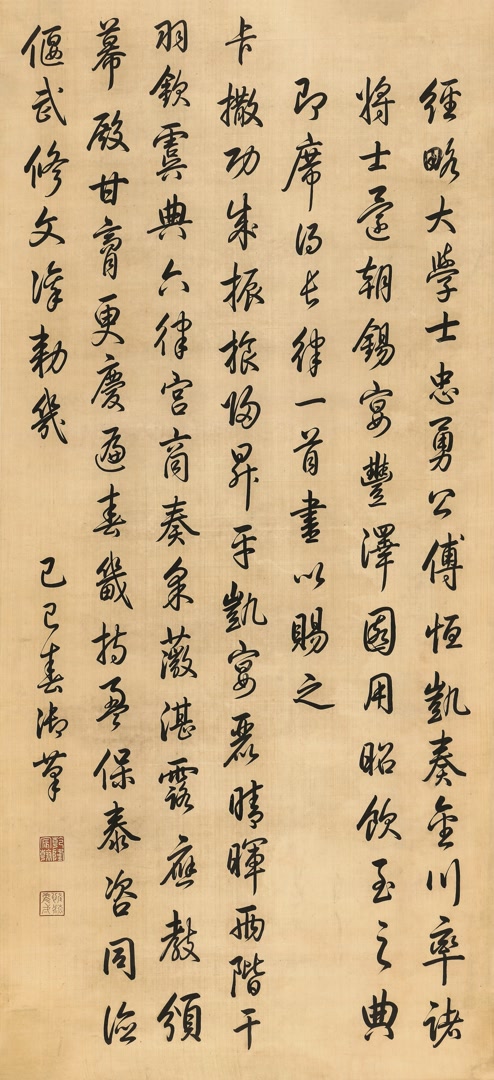 經略大學士忠勇公傅恒凱奏金川率諸
將士還朝錫宴豐澤園用昭飲至之典
即席得長律一首書以賜之
卡撒功成振旅歸昇平凱宴麗晴暉兩階干
羽欽虞典六律宮商奏采薇湛露應教頒
幕殿甘膏更慶遍春畿持盈保泰咨同德
偃武修文凜勅幾
己巳春御筆
乾隆宸翰